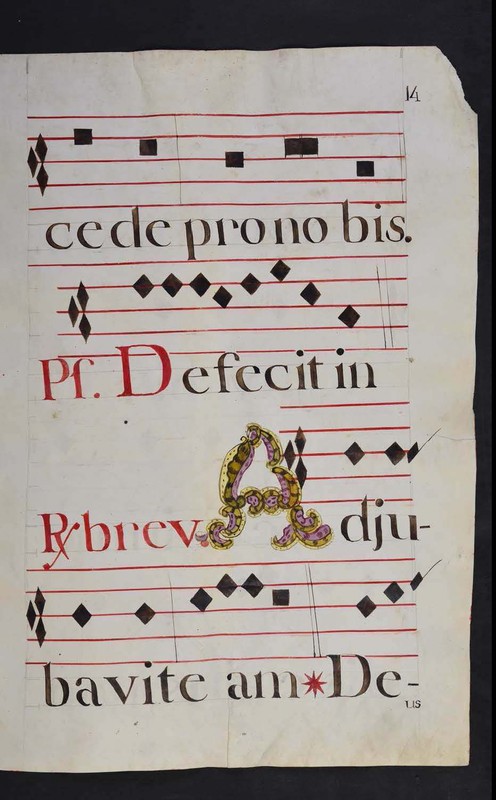 14
cede pro no bis.
Ps. Defecit in
℟ brev. Adju-
bavite am * De-
LIS